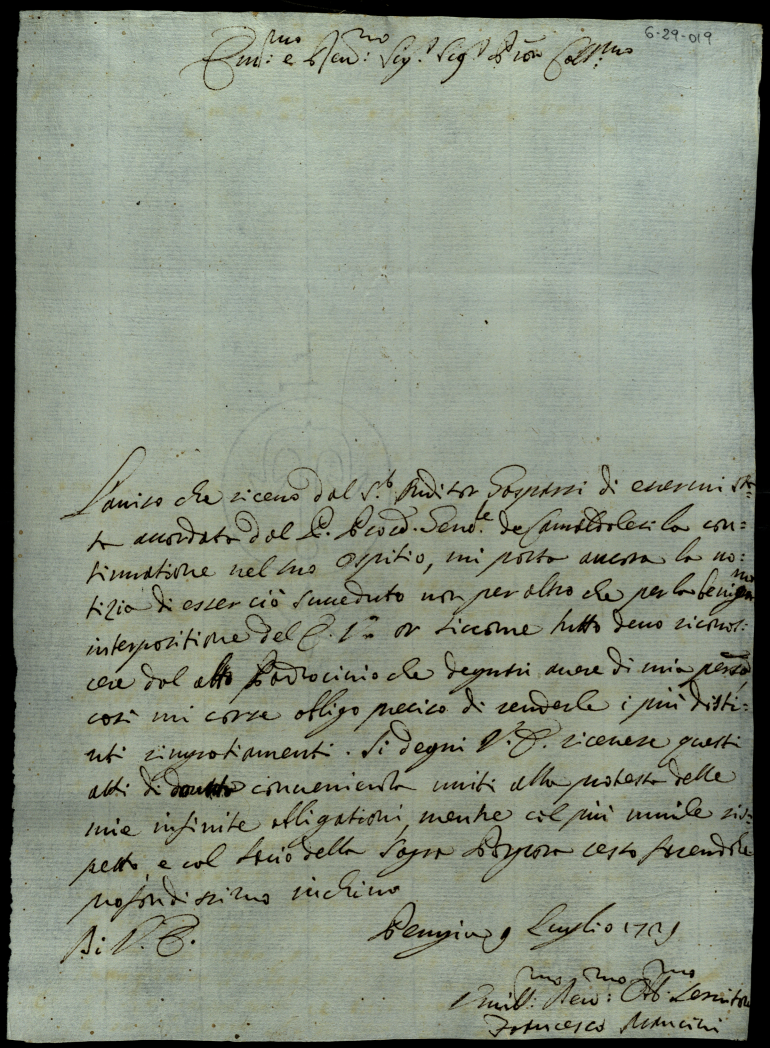 6-29-019
Em:mo e Rev:mo Sig.r Sig.r P~ron Col:mo
L'aviso che ricevo dal S.r Auditor Gasparri di essermi sta=
ta accordata dal P. Proc. Gen.le de Camaldolesi la con=
tinuatione nel suo Ospitio, mi porta ancora la no:
tizia di esser ciò succeduto non per altro che per la benig.ma
interpositione del E. V.ra or siccome tutto devo riconos:
cere dal alto Padrocinio che degnasi avere di mia persona,
così mi corre obligo preciso di renderle i più disti:
nti ringratiamenti. Si degni V. E. ricevere questi
atti di convenienza uniti alla protesta delle
mie infinite obligationi, mentre col più umile ris=
petto, e col bacio della Sagra Porpora resto facendole
profondissimo inchino
Di V. E.
Perugia 9 Luglio 1729
Umill:mo Dev:mo Obb:mo Servitore
Francesco Mancini